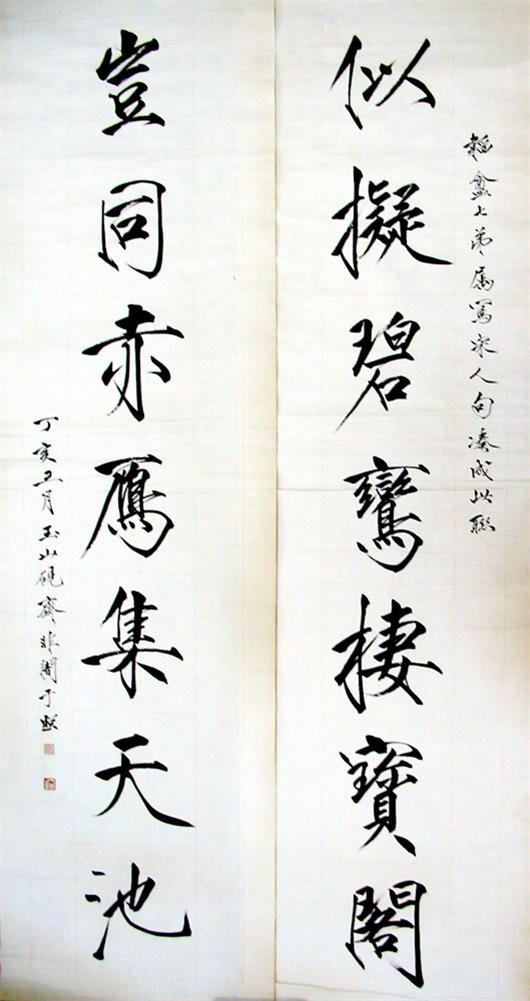 盦上弟属寫宋人句湊成此聯
似擬碧鸞棲寶閣
豈同赤鴈集天池
丁亥五月玉山硯齋非闇于照